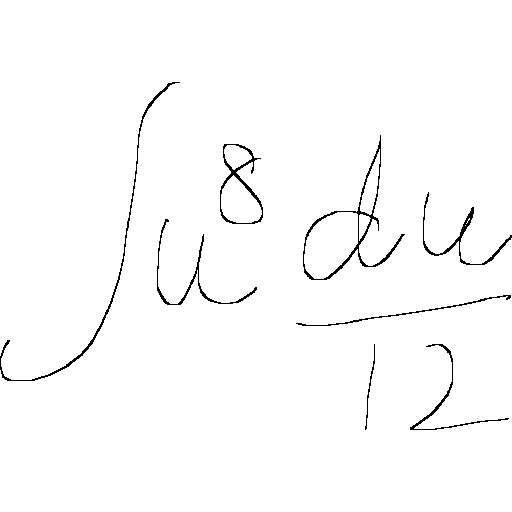 ∫u⁸ du/12